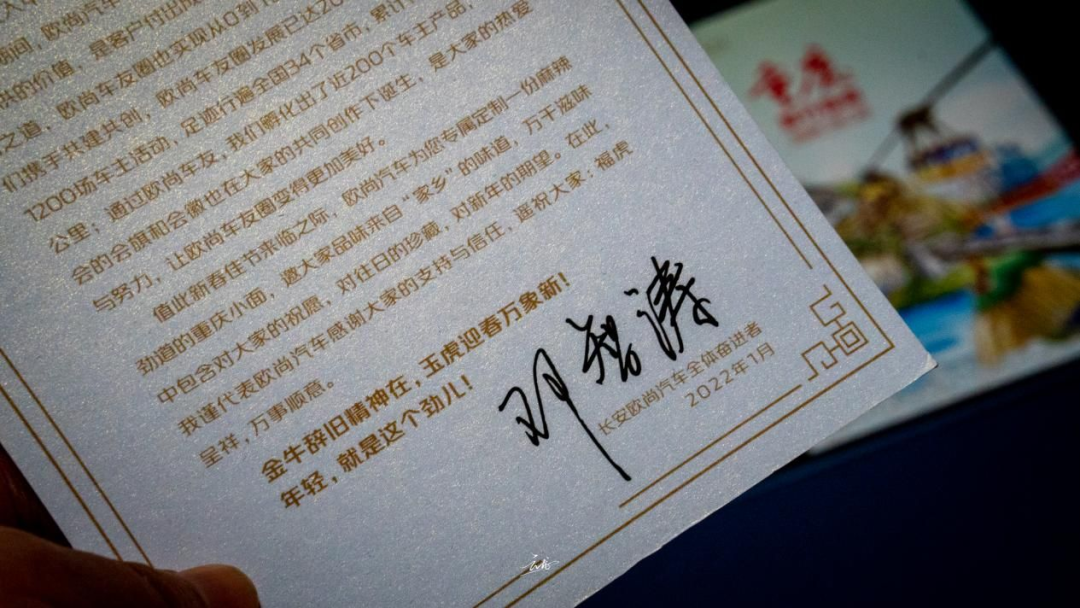 期间，欧尚汽车
供的价值、是客户付出成
之道，欧尚车友圈也实现从0到1
们携手共建共创，欧尚车友圈发展已达20
1200场车主活动，足迹行遍全国34个省市，累计
公里；通过欧尚车友，我们孵化出了近200个车主产品，
会的会旗和会徽也在大家的共同创作下诞生，是大家的热爱
与努力，让欧尚车友圈变得更加美好。
值此新春佳节来临之际，欧尚汽车为您专属定制一份麻辣
劲道的重庆小面，邀大家品味来自“家乡”的味道，万千滋味
中包含对大家的祝愿，对往日的珍藏，对新年的期望。在此，
我谨代表欧尚汽车感谢大家的支持与信任，遥祝大家：福虎
呈祥，万事顺意。
金牛辞旧精神在，玉虎迎春万象新！
年轻，就是这个劲儿！
邓智涛
长安欧尚汽车全体奋进者
2022年1月
重庆